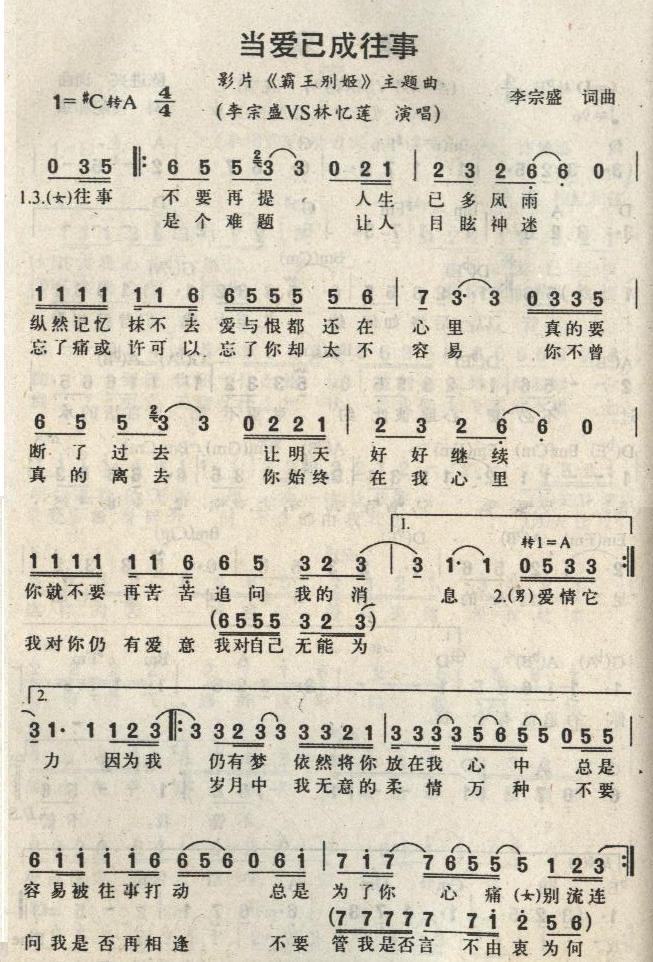 当爱已成往事
影片《霸王别姬》主题曲
1=#C转A 4/4 (李宗盛VS林忆莲 演唱) 李宗盛 词曲
0 35 6 5 5 2 3 3 0 21 2 3 2 6 6 0
1.3.(女)往事 不要再提 人生 已多风雨
是个难题 让人 目眩神迷
1111 11 6 6555 5 6 7 3· 3 0335
纵然记忆 抹不去 爱与恨都 还在 心里 真的要
忘了痛或 许可以 忘了你却 太不 容易 你不曾
6 5 5 2 3 3 0221 2 3 2 6 6 0
断了过去 让明天 好好继续
真的离去 你始终 在我心里
1.
转1=A
1111 11 6 6 5 3 2 3 3 1· 1 0533
你就不要 再苦苦 追问 我的消 息 2.(男)爱情它
(6555 32 3)
我对你仍 有爱意 我对自己 无能为
2.
31· 1 123 3 323 3 3321 333 35655 055
力 因为我 仍有梦 依然将你 放在我 心中 总是
岁月中 我无意的 柔情万种 不要
611 116 656 0 61 717 7655 123
容易被 往事打动 总是 为了你 心痛 (女)别流连
(77777 7 71 2 56)
问我是否再相逢 不要 管我是否言 不由衷 为何